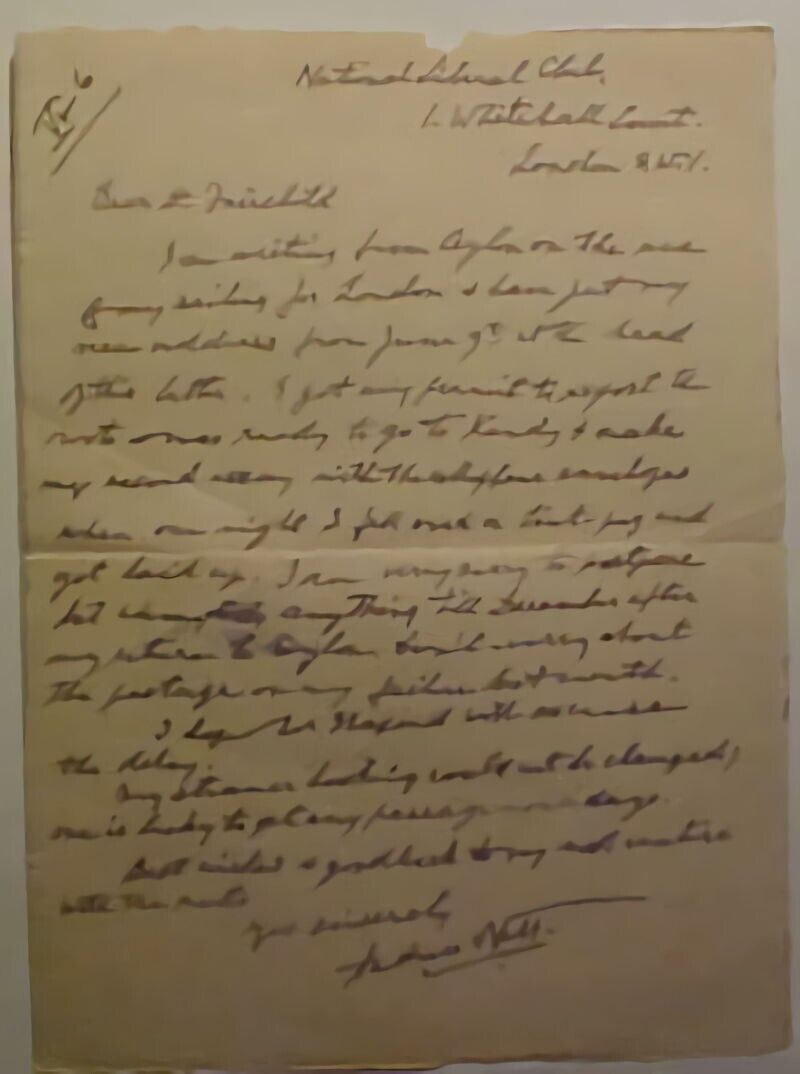 National Liberal Club,
1. Whitehall Court.
London S.W.1.
Dear Dr Fairchild
I am writing from Ceylon on the eve
of my sailing for London & have put my
new address from June 9th at the head
of this letter. I got my permit to export the
nuts & was ready to go to Kandy & make
my second essay with the envelopes
when one night I fell over a tent-peg and
got laid up. I am very sorry to postpone
but cannot do anything till December after
my return to Ceylon. Don't worry about
the postage on my failure last month.
I hope will excuse
the delay.
My steamer booking could not be changed,
one is lucky to get any passage days.
Best wishes & good luck to my next venture
with the nuts
Yrs sincerely
Andreas Nell.